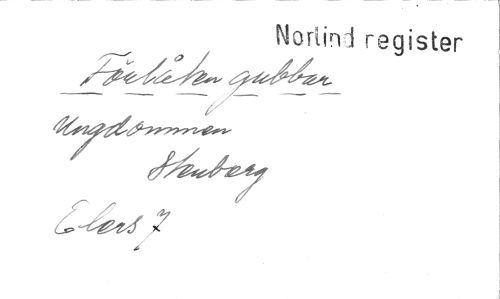 Norlind register
Förlåten gubbar
Ungdommen
Stenborg
Elers 7